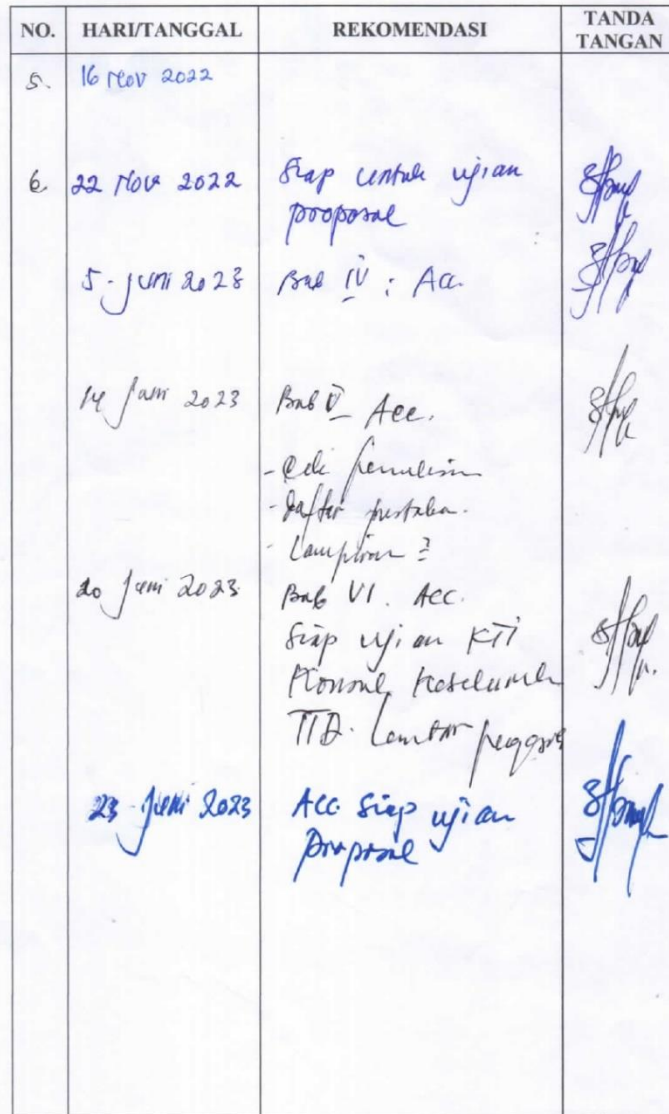 NO. HARI/TANGGAL REKOMENDASI TANDA TANGAN
5. 16 Nov 2022
6. 22 Nov 2022 Siap untuk ujian
proposal
5 - Juni 2023 Bab IV : Acc.
14 Juni 2023 Bab V Acc.
- Cek penulisan
- Daftar pustaka.
- Lampiran ?
20 Juni 2023 Bab VI. Acc.
Siap ujian KTI
Konsul Keseluruhan
TTD. Lembar
23 - Juni 2023 Acc. Siap ujian
Proposal